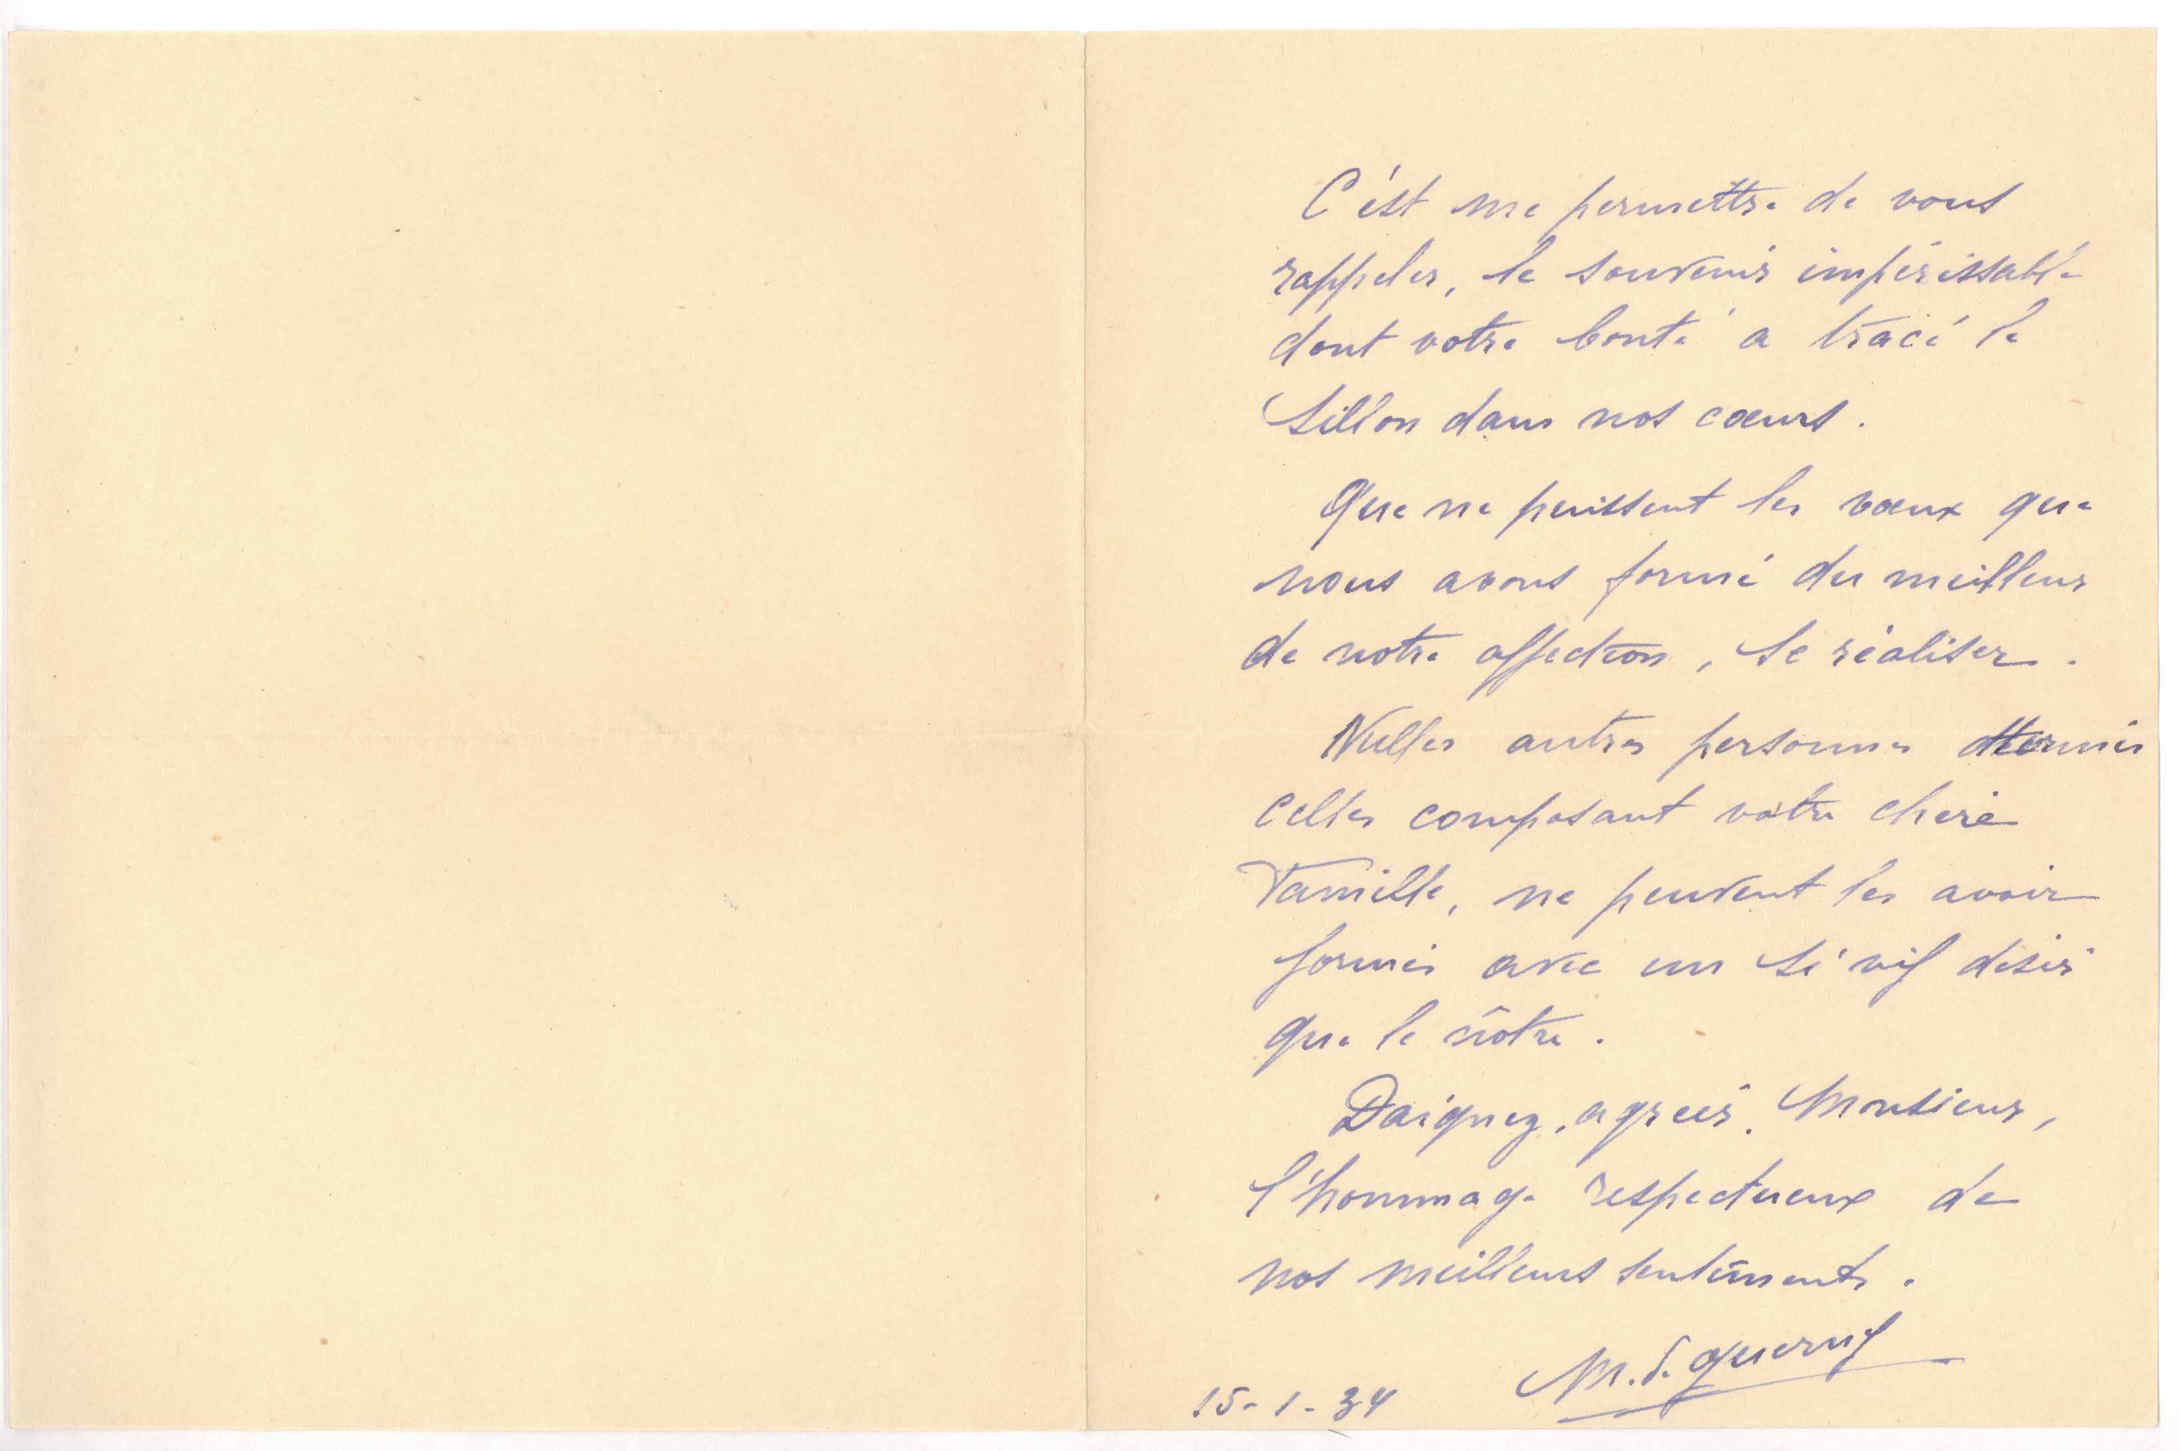 C'est me permettre de vous
rappeler, le souvenir impérissable
dont votre bonté a tracé le
Sillon dans nos cœurs.
Que ne puissent les vœux que
nous avons formé du meilleur
de notre affection, se réaliser.
Nulles autres personnes
celles composant votre chère
Famille, ne peuvent les avoir
formés avec un si vif désir
que le nôtre.
Daignez, agréer, Monsieur,
l'hommage respectueux de
nos meilleurs sentiments.
15-1-34